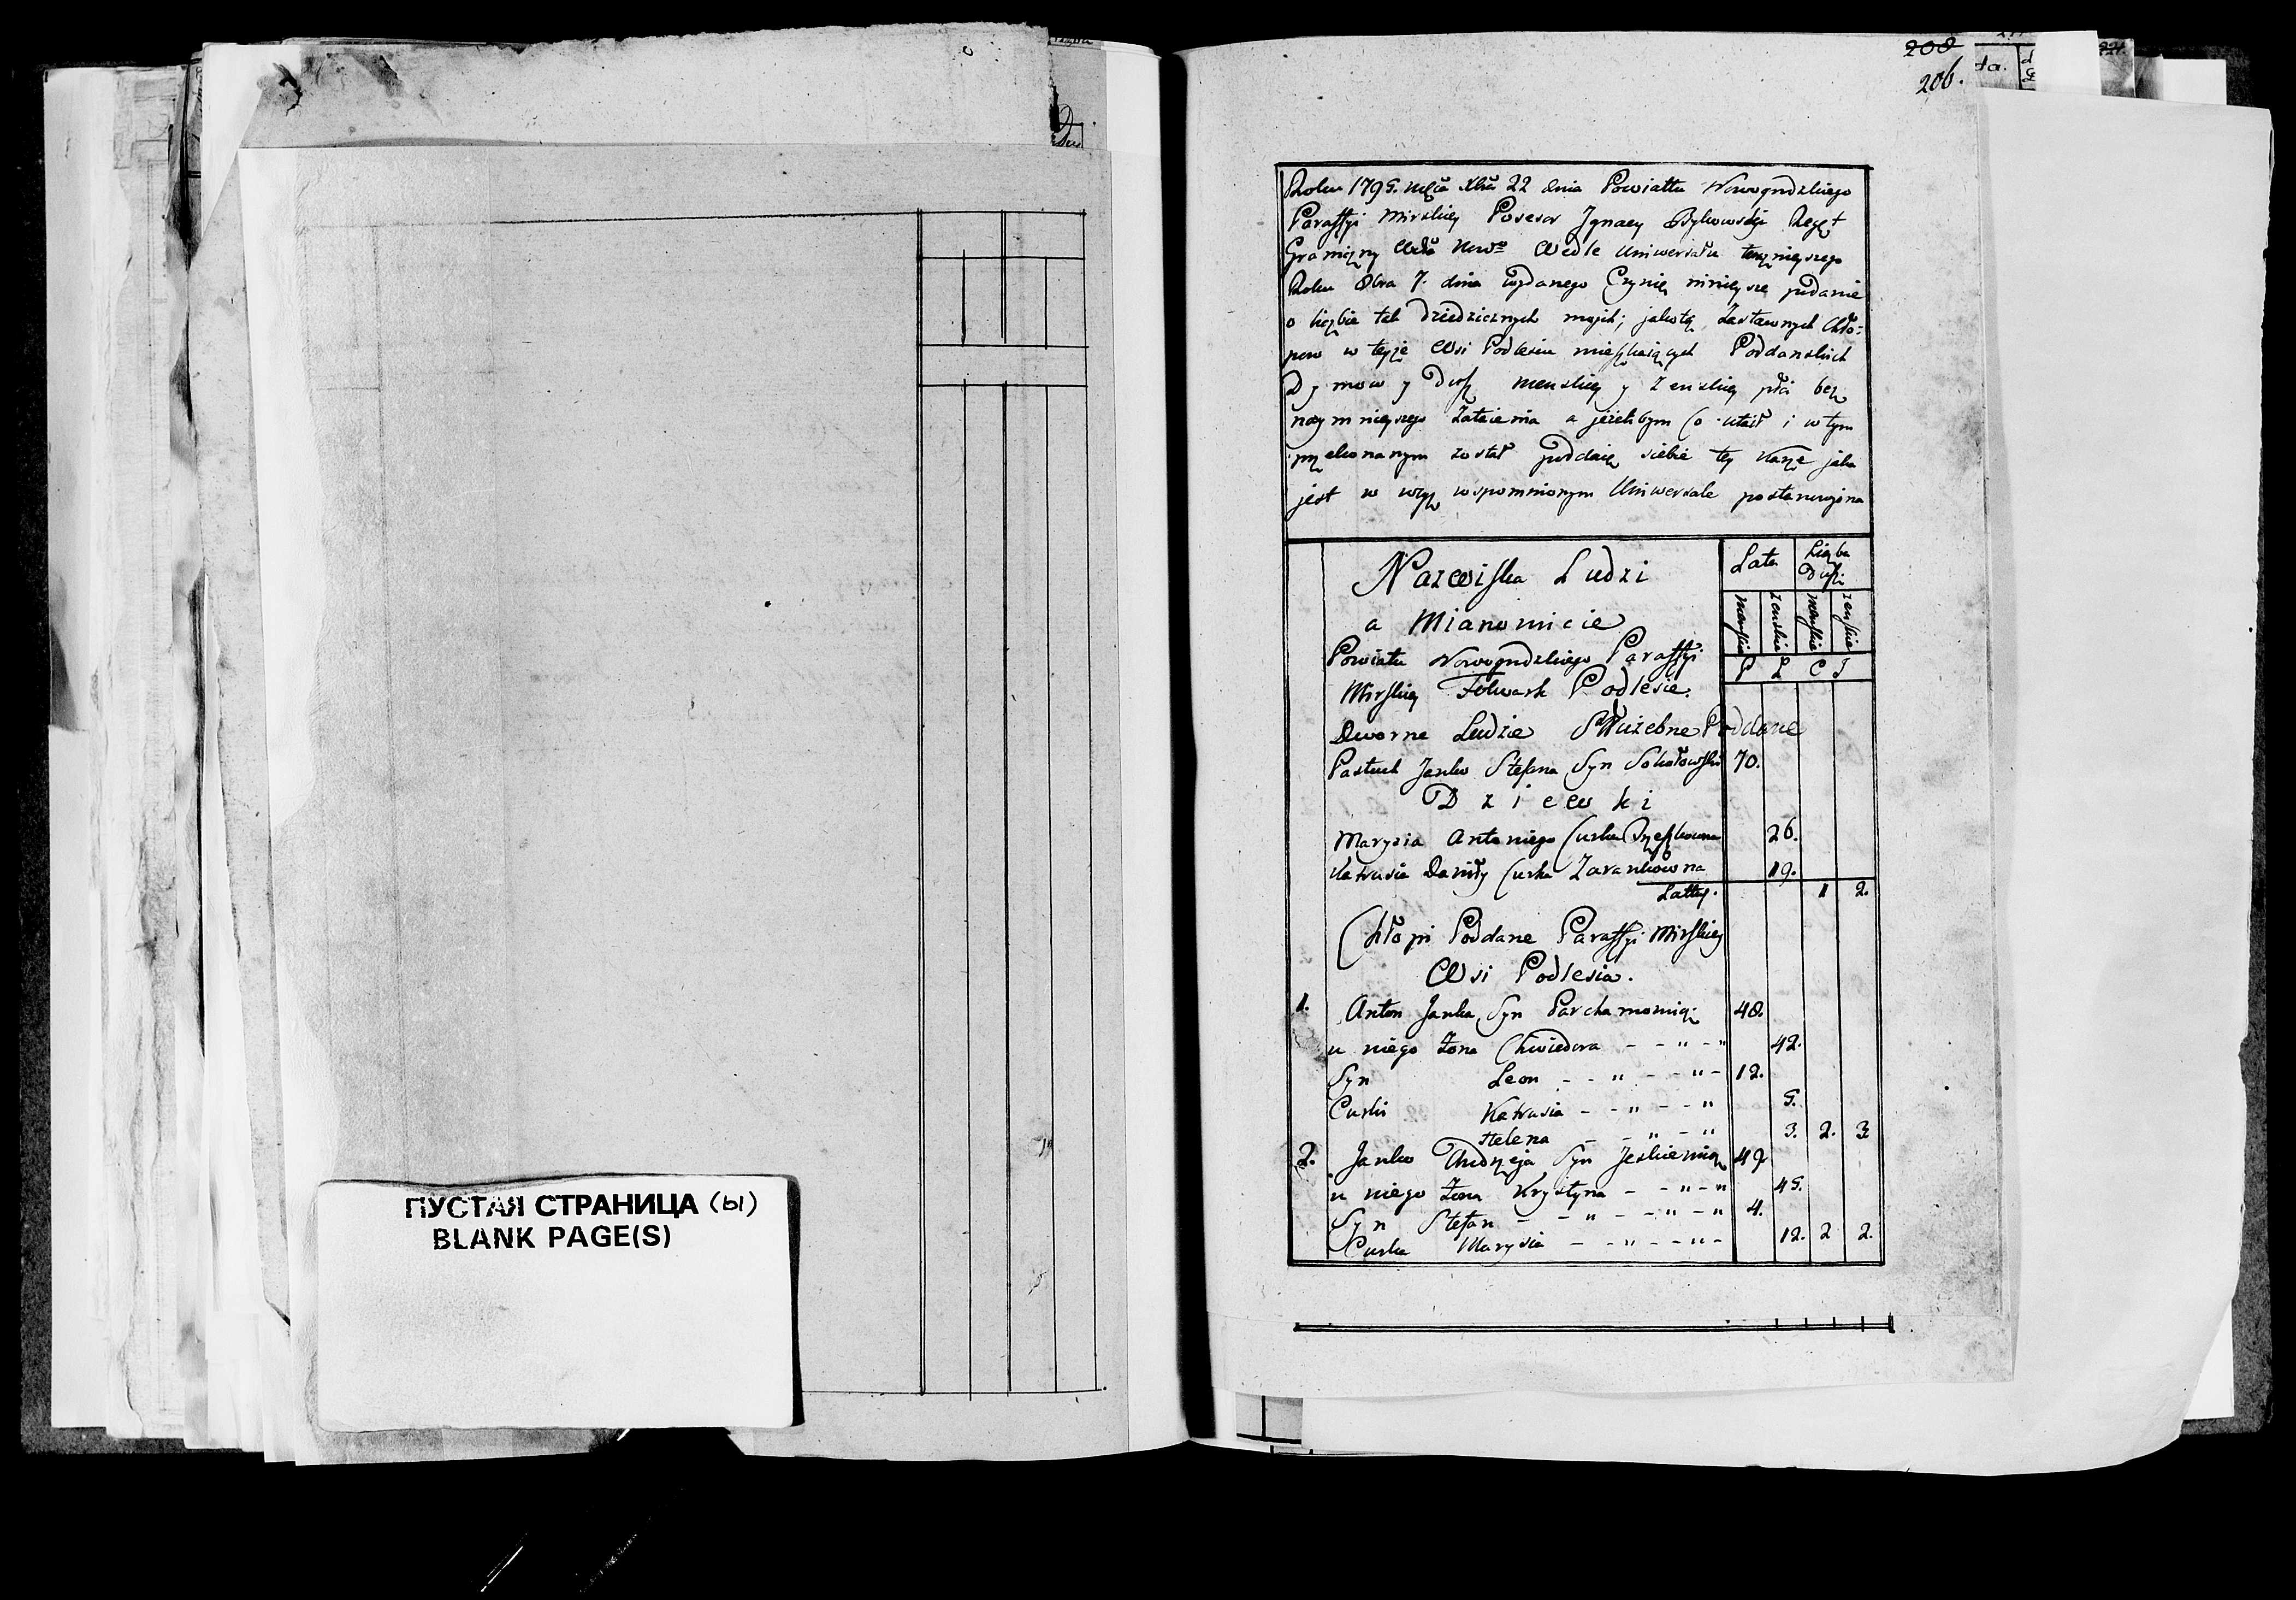 ПУСТАЯ СТРАНИЦА (Ы)
BLANK PAGE(S)
208
206.
Roku 1795. Mca Xbra 22 dnia Powiattu Nowogrodzkiego
Paraffyi Mirskiey Posesor Jgnacy Bykowski Regt
Graniczny Wdztwa Nowo Wedle Uniwersału teraznieyszego
Roku 8bra 7. dnia wydanego Czynię ninieysze podanie
o liczbie tak Dziedzicznych mojch; jakotę Zastawnych Chło:
pow w teyże Wsi Podlesiu mieszkaiących Poddanskich
Dymow y Dusz Menskiey y Zenskiey płci bez
naymnieyszego Zataienia a jeżelibym Co utaił i w tym
przekonanym został poddaię siebie tey Karze jaka
jest w wyz wspomnionym Uniwersale postanowiona
Nazwiska Ludzi
a Mianowicie
Lata
Liczba Duszi
menskie zenskie menskie zenskie
Powiatu Nowogrodzkiego Paraffyi
Mirskiey Folwark Podlesie.
Dworne Ludzie Służebne Poddane
Pastuch Janko Stefana Syn Sokołowski 70.
Dziewki
Marysia Antoniego Curka 26.
Katrusia Daniły Curka Zarankowna 19.
Lattus. 1 2.
Chłopi Poddane Paraffyi Mirskiey
Wsi Podlesia.
1. Anton Janka Syn Parchamowicz 48.
u niego Zona Chwiedora - - " - " 42.
Syn Leon - - " - - " - 12.
Curki Katrusia - - " - - " 5.
Helena - - " - " 3. 2. 3
2. Janko Andrzeja Syn Jeskiewicz 49
u niego Zona Krystyna - - " - " 45.
Syn Stefan - - " - - " - " 4.
Curka Marysia - - " - - " - 12. 2 2.